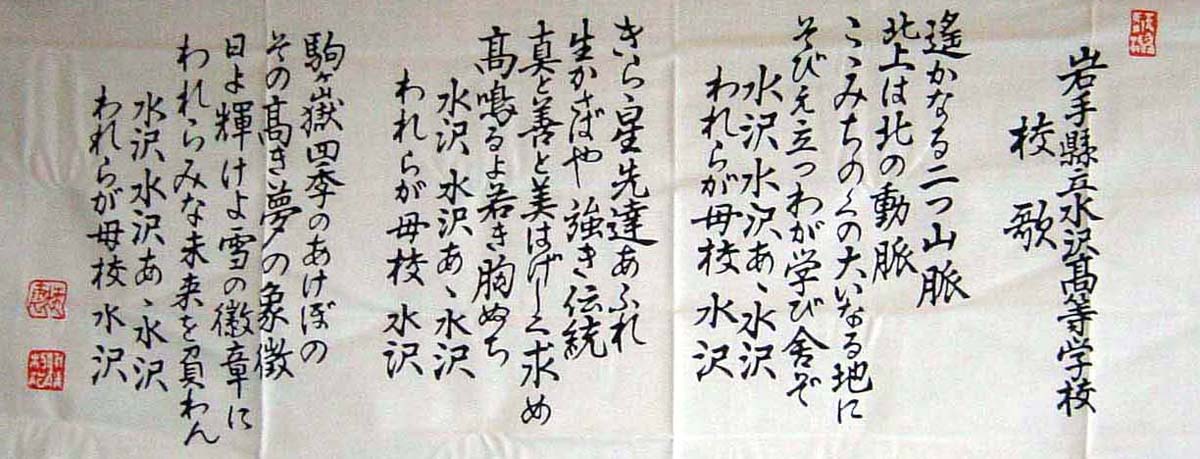 岩手縣立水沢髙等学校
校歌
遙かなる二つ山脈
北上は北の動脈
こゝみちのくの大いなる地に
そびえ立つわが学び舎ぞ
水沢水沢あゝ水沢
われらが母校 水沢
きら星先達あふれ
生かさばや 強き伝統
真と善と美はげしく求め
髙鳴るよ若き胸ぬち
水沢 水沢あゝ水沢
われらが母校 水沢
駒ヶ嶽四季のあけぼの
その髙き夢の象徴
日よ輝けよ雪の徽章に
われらみな未来を負わん
水沢水沢あゝ水沢
われらが母校 水沢